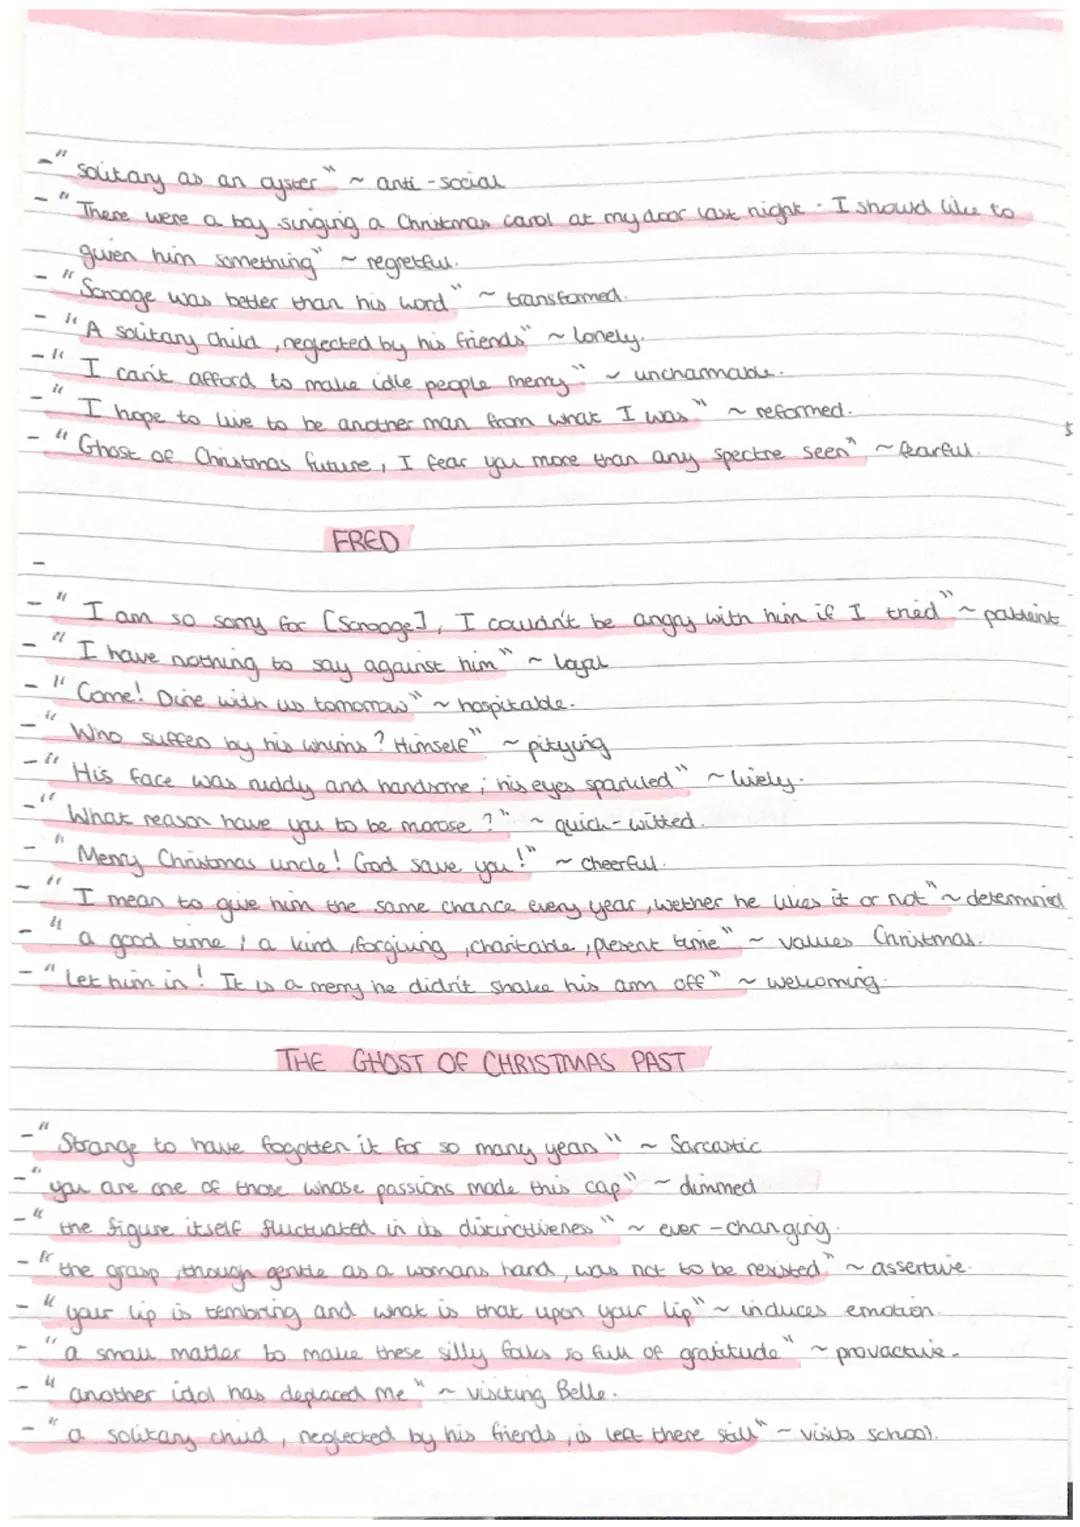 - " solitary as an oyster " ~ anti-social
- " There were a boy singing a Christmas carol at my door last night . I should like to
given him something" ~ regretful.
- " Scrooge was better than his word " ~ transformed.
- " A solitary child , neglected by his friends " ~ lonely.
- " I can't afford to make idle people merry " ~ uncharmable.
- " I hope to live to be another man from what I was " ~ reformed.
- " Ghost of Christmas future , I fear you more than any spectre seen " ~ fearful.
FRED
-
- " I am so sorry for [Scrooge] , I couldn't be angry with him if I tried " ~ patient
- " I have nothing to say against him " ~ loyal
- " Come! Dine with us tomorrow " ~ hospitable.
- " Who suffers by his whims ? Himself " ~ pitying
- " His face was ruddy and handsome ; his eyes sparkled " ~ lively.
- " What reason have you to be morose ? " ~ quick-witted.
- " Merry Christmas uncle ! God save you ! " ~ cheerful.
- " I mean to give him the same chance every year , wether he likes it or not " ~ determined
- " a good time ; a kind , forgiving , charitable , plesent time " ~ values Christmas.
- " let him in ! It is a merry he didn't shake his arm off " ~ welcoming.
THE GHOST OF CHRISTMAS PAST
- " Strange to have fogotten it for so many years " ~ Sarcastic
- " you are one of those whose passions made this cap " ~ dimmed
- " the figure itself fluctuated in its distinctiveness " ~ ever-changing.
- " the grasp , though gentle as a womans hand , was not to be resisted " ~ assertive.
- " your lip is tembring and what is that upon your lip " ~ induces emotion
- " a small matter to make these silly folks so full of gratitude " ~ provactive.
- " another idol has deplaced me " ~ visiting Belle.
- " a solitary child , neglected by his friends , is left there still " ~ visits school.